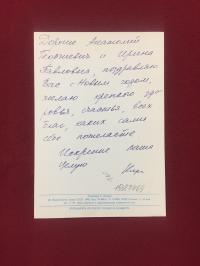 Дорогие Анатолий
Георгиевич и Ирина
Павловна, поздравляю
Вас с Новым годом,
желаю крепкого здо-
ровья, счастья, всех
благ, каких сами
себе пожелаете
Искренне ваша
Целую